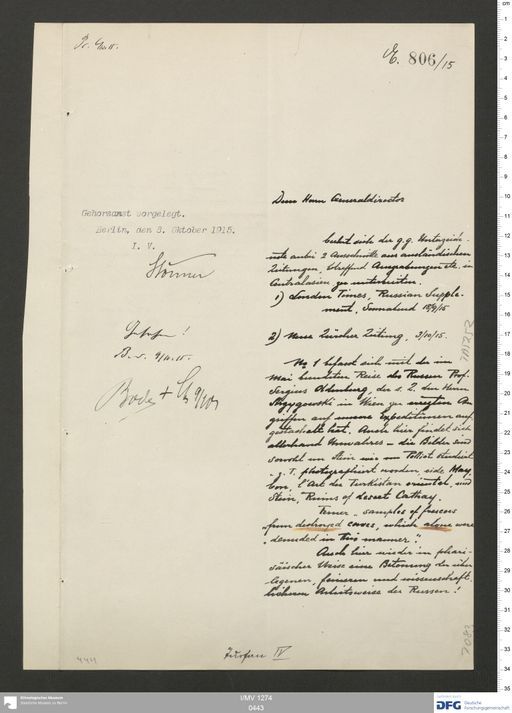 E. 806/15
Dem Herrn Generaldirector
Gehorsamst vorgelegt.
Berlin, den 8. Oktober 1915.
I. V.
Stönner
Gelesen!
B. v. 9/10.15.
Bode
beehrt sich der g. g. Unterzeich-
nete anbei 2 Ausschnitte aus ausländischen
Zeitungen, betreffend Ausgrabungen etc. in
Centralasien zu unterbreiten.
1) London Times, Russian Supple-
ment, Sonnabend 18/9/15
2) Neue Zürcher Zeitung, 3/10/15.
No 1 befasst sich mit der im
Mai beendeten Reise des Russen Prof.
Sergius Oldenburg, der s. Z. den Herrn
Strzygowski in Wien zu erneuten An-
griffen auf unsere Expeditionen auf-
gestachelt hat. Auch hier findet sich
allerhand Unwahres – die Bilder sind
sowohl von Stein wie von Pelliot studiert
u. z. T. photographiert worden, siehe
l'Art du Turkistan oriental, und
Stein, Ruins of desert Cathay.
Ferner "samples of frescoes
"from destroyed caves, which alone were
"denuded in this manner".
Auch hier wieder in phari-
säischer Weise eine Betonung der über-
legenen, feineren und wissenschaft-
licheren Arbeitsweise der Russen!
Turfan IV
I/MV 1274
0443
Ethnologisches Museum
Staatliche Museen zu Berlin
DFG Deutsche
Forschungsgemeinschaft